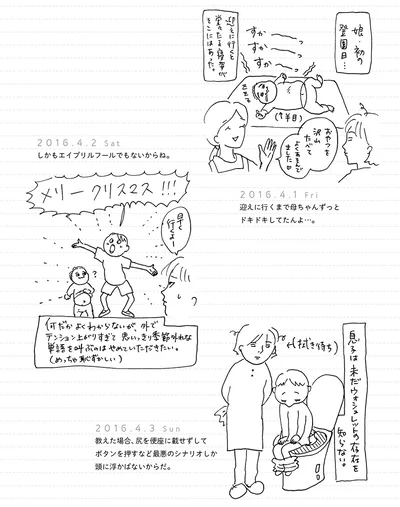 娘・初の
登園日…
すか
すか
すか〜っ
迎えに行くと
堂々たる寝姿が
そこにはあった。
(1才半)
おやつを
沢山
たべて
よくあそんで
ました□
2016.4.1 Fri
迎えに行くまで母ちゃんずっと
ドキドキしてたんよ…。
2016.4.2 Sat
しかもエイプリルフールでもないからね。
メリークリスマス!!!
早く
行くよー
何だかよくわからないが、外で
テンション上がりすぎて思いっきり季節外れな
単語を叫ぶのはやめていただきたい。
(めっちゃ恥ずかしい)
息子は未だウォシュレットの存在を
知らない。
(拭き待ち)
2016.4.3 Sun
教えた場合、尻を便座に載せずして
ボタンを押すなど最悪のシナリオしか
頭に浮かばないからだ。